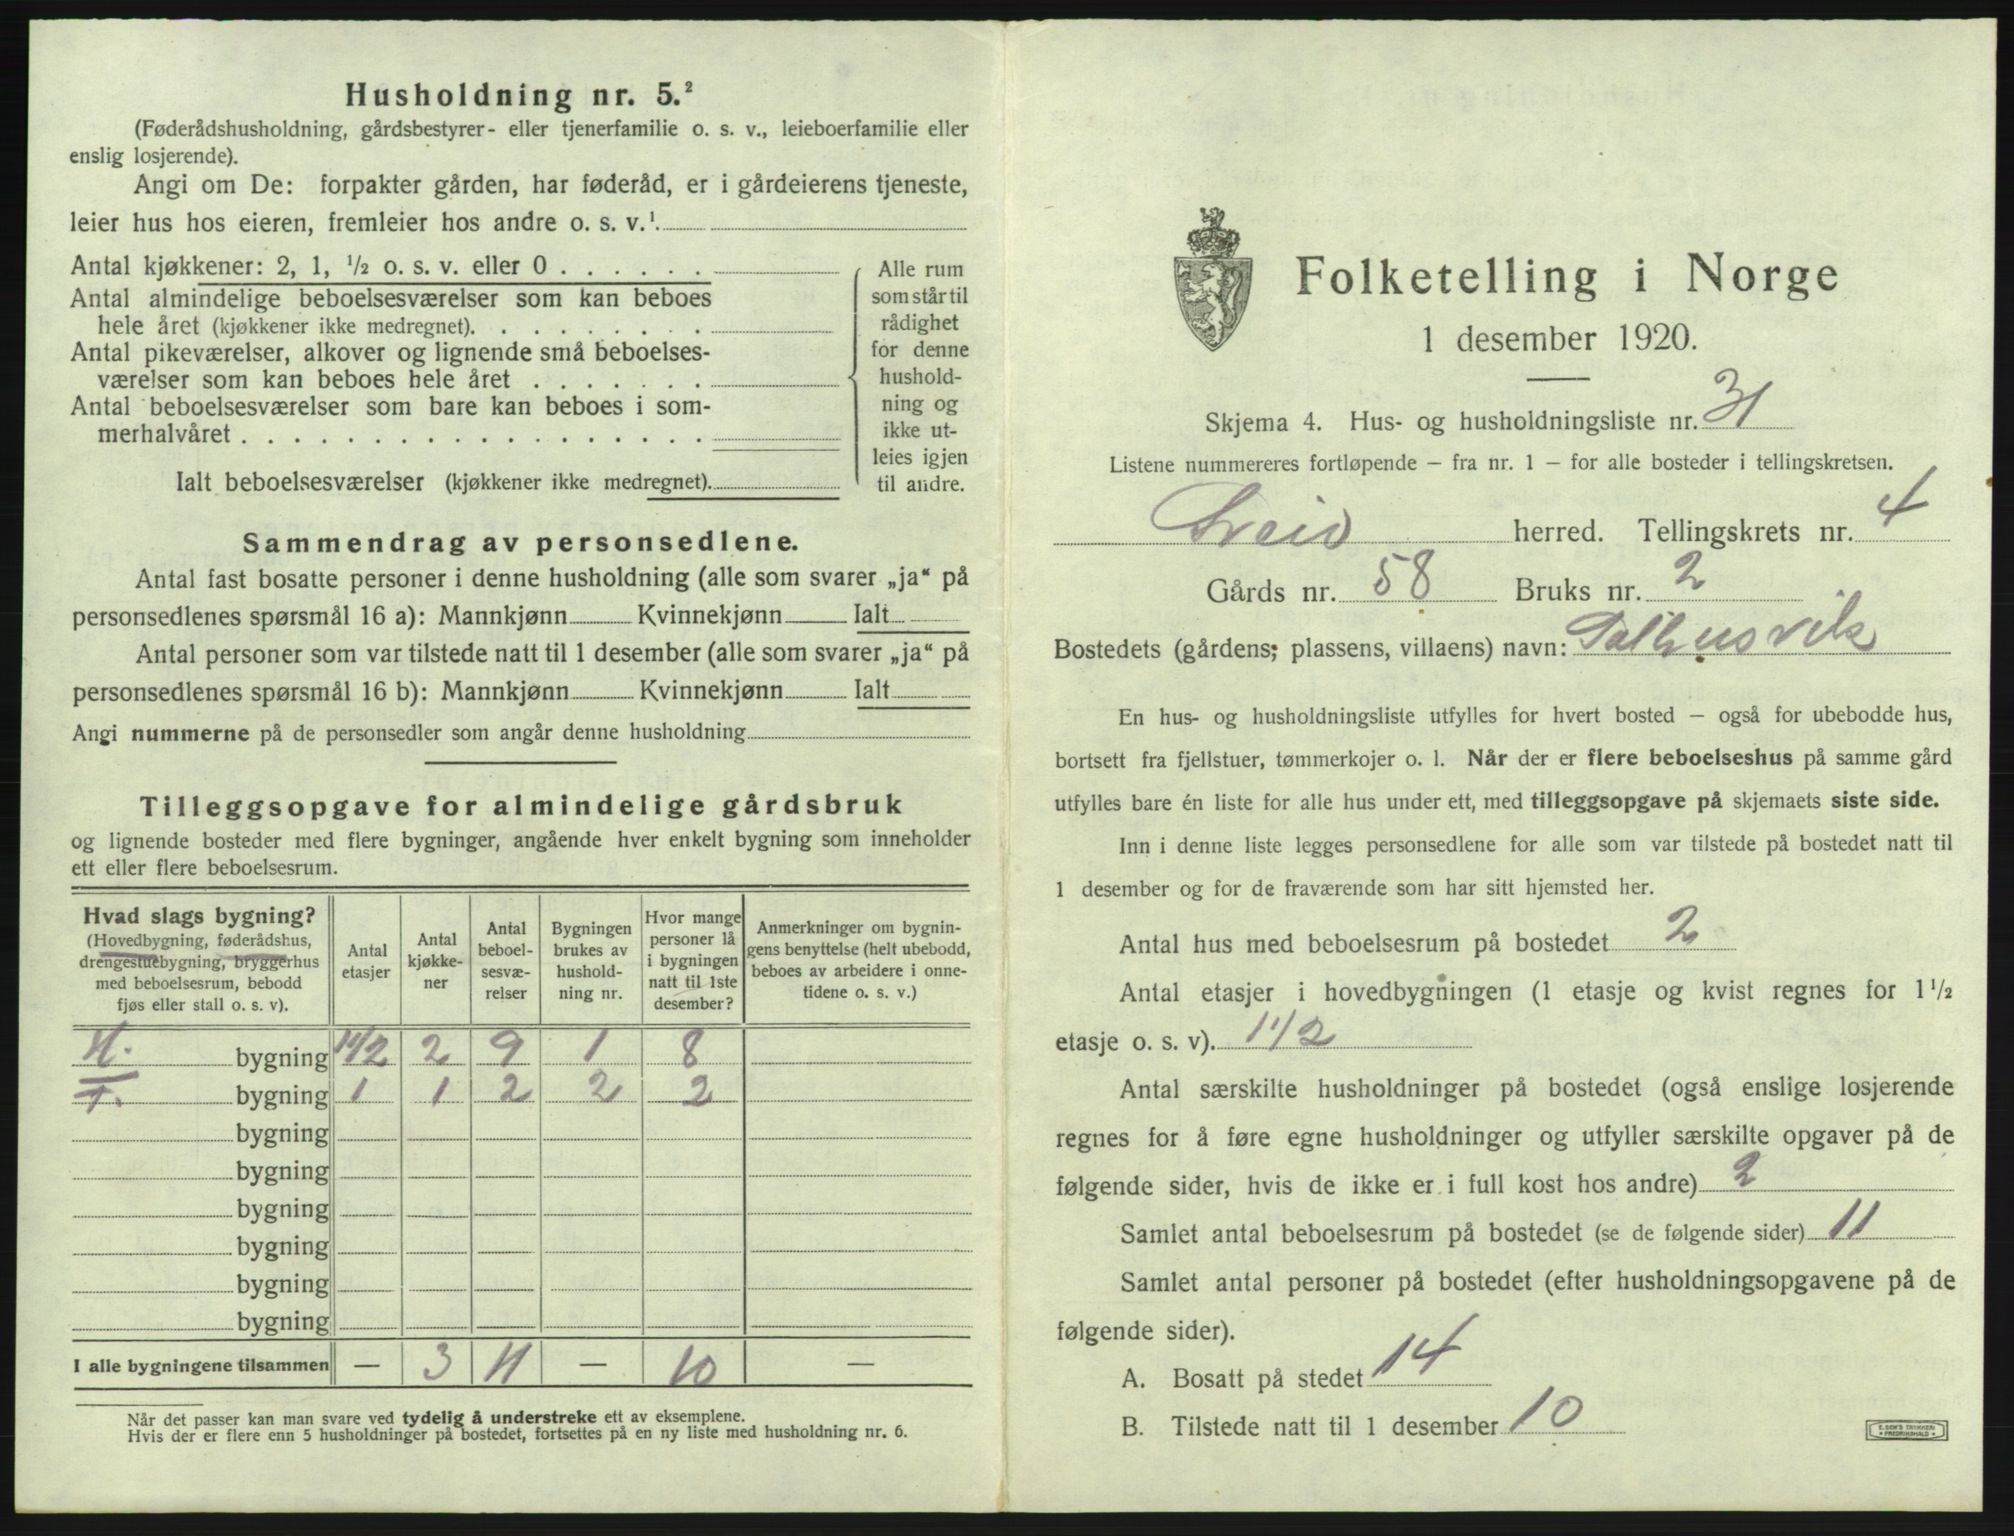 Husholdning nr. 5.²
(Føderådshusholdning, gårdsbestyrer- eller tjenerfamilie o. s. v., leieboerfamilie eller
enslig losjerende).
Angi om De: forpakter gården, har føderåd, er i gårdeierens tjeneste,
leier hus hos eieren, fremleier hos andre o. s. v.¹.
Antal kjøkkener: 2, 1, ½ o. s. v. eller 0 . . . . . .
Antal almindelige beboelsesværelser som kan beboes
hele året (kjøkkener ikke medregnet). . . . . . . . .
Antal pikeværelser, alkover og lignende små beboelses-
værelser som kan beboes hele året . . . . . . .
Antal beboelsesværelser som bare kan beboes i som-
merhalvåret . . . . . . . . . . . . . . . . . .
Ialt beboelsesværelser (kjøkkener ikke medregnet).
Alle rum
som står til
rådighet
for denne
hushold-
ning og
ikke ut-
leies igjen
til andre.
Sammendrag av personsedlene.
Antal fast bosatte personer i denne husholdning (alle som svarer „ja“ på
personsedlenes spørsmål 16 a): Mannkjønn Kvinnekjønn Ialt
Antal personer som var tilstede natt til 1 desember (alle som svarer „ja“ på
personsedlenes spørsmål 16 b): Mannkjønn Kvinnekjønn Ialt
Angi nummerne på de personsedler som angår denne husholdning
Tilleggsopgave for almindelige gårdsbruk
og lignende bosteder med flere bygninger, angående hver enkelt bygning som inneholder
ett eller flere beboelsesrum.
Hvad slags bygning?
(Hovedbygning, føderådshus,
drengestuebygning, bryggerhus
med beboelsesrum, bebodd
fjøs eller stall o. s. v).
Antal
etasjer
Antal
kjøkke-
ner
Antal
beboel-
sesvæ-
relser
Bygningen
brukes av
hushold-
ning nr.
Hvor mange
personer lå
i bygningen
natt til 1ste
desember?
Anmerkninger om bygnin-
gens benyttelse (helt ubebodd,
beboes av arbeidere i onne-
tidene o. s. v.)
H. bygning 1 1/2 2 9 1 8
F. bygning 1 1 2 2 2
bygning
bygning
bygning
bygning
bygning
bygning
I alle bygningene tilsammen — 3 11 — 10 —
Når det passer kan man svare ved tydelig å understreke ett av eksemplene.
Hvis der er flere enn 5 husholdninger på bostedet, fortsettes på en ny liste med husholdning nr. 6.
Folketelling i Norge
1 desember 1920.
Skjema 4. Hus- og husholdningsliste nr. 31
Listene nummereres fortløpende – fra nr. 1 – for alle bosteder i tellingskretsen.
Sveio herred. Tellingskrets nr. 4
Gårds nr. 58 Bruks nr. 2
Bostedets (gårdens; plassens, villaens) navn: Salhusvik
En hus- og husholdningsliste utfylles for hvert bosted – også for ubebodde hus,
bortsett fra fjellstuer, tømmerkojer o. l. Når der er flere beboelseshus på samme gård
utfylles bare én liste for alle hus under ett, med tilleggsopgave på skjemaets siste side.
Inn i denne liste legges personsedlene for alle som var tilstede på bostedet natt til
1 desember og for de fraværende som har sitt hjemsted her.
Antal hus med beboelsesrum på bostedet 2
Antal etasjer i hovedbygningen (1 etasje og kvist regnes for 1½
etasje o. s. v). 1 1/2
Antal særskilte husholdninger på bostedet (også enslige losjerende
regnes for å føre egne husholdninger og utfyller særskilte opgaver på de
følgende sider, hvis de ikke er i full kost hos andre) 2
Samlet antal beboelsesrum på bostedet (se de følgende sider) 11
Samlet antal personer på bostedet (efter husholdningsopgavene på de
følgende sider).
A. Bosatt på stedet 14
B. Tilstede natt til 1 desember 10